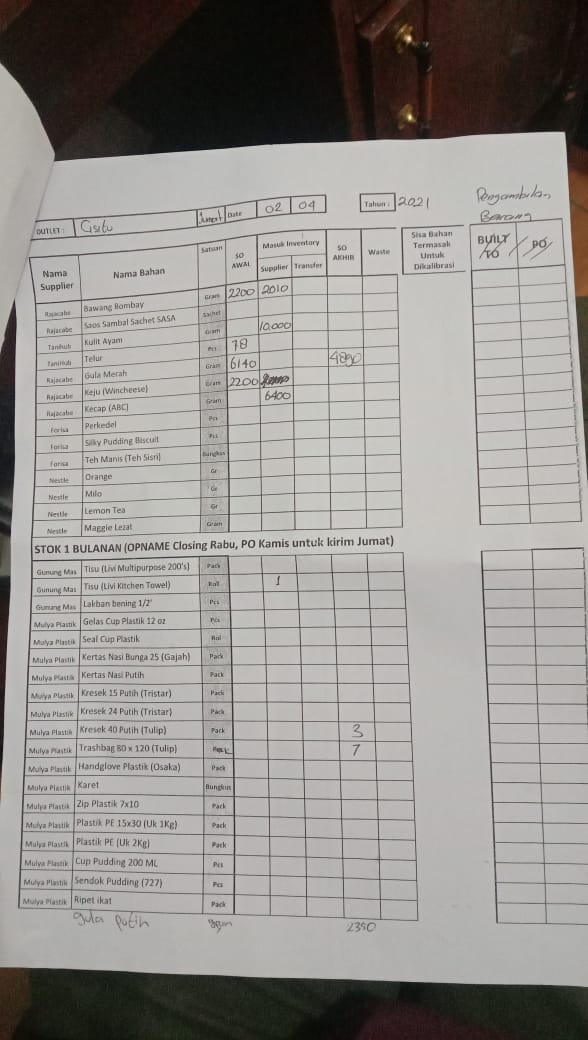 Pengambilan
Barang
OUTLET : Cisitu Jumat Date 02 04 Tahun : 2021
Nama Supplier Nama Bahan Satuan SO AWAL Masuk Inventory Supplier Transfer SO AKHIR Waste Sisa Bahan Termasak Untuk Dikalibrasi BUILT TO PO
Rajacabe Bawang Bombay Gram 2200 2010
Rajacabe Saos Sambal Sachet SASA Sachet
Tanihub Kulit Ayam Gram 10.000
Tanihub Telur Pcs 78
Rajacabe Gula Merah Gram 6140 4890
Rajacabe Keju (Wincheese) Gram 2200
Rajacabe Kecap (ABC) Gram 6400
Forisa Perkedel Pcs
Forisa Silky Pudding Biscuit Pcs
Forisa Teh Manis (Teh Sisri) Bungkus
Nestle Orange Gr
Nestle Milo Gr
Nestle Lemon Tea Gr
Nestle Maggie Lezat Gram
STOK 1 BULANAN (OPNAME Closing Rabu, PO Kamis untuk kirim Jumat)
Gunung Mas Tisu (Livi Multipurpose 200's) Pack
Gunung Mas Tisu (Livi Kitchen Towel) Roll 1
Gunung Mas Lakban bening 1/2' Pcs
Mulya Plastik Gelas Cup Plastik 12 oz Pcs
Mulya Plastik Seal Cup Plastik Rol
Mulya Plastik Kertas Nasi Bunga 25 (Gajah) Pack
Mulya Plastik Kertas Nasi Putih Pack
Mulya Plastik Kresek 15 Putih (Tristar) Pack
Mulya Plastik Kresek 24 Putih (Tristar) Pack
Mulya Plastik Kresek 40 Putih (Tulip) Pack 3
Mulya Plastik Trashbag 80 x 120 (Tulip) Pack 7
Mulya Plastik Handglove Plastik (Osaka) Pack
Mulya Plastik Karet Bungkus
Mulya Plastik Zip Plastik 7x10 Pack
Mulya Plastik Plastik PE 15x30 (Uk 1Kg) Pack
Mulya Plastik Plastik PE (Uk 2Kg) Pack
Mulya Plastik Cup Pudding 200 ML Pcs
Mulya Plastik Sendok Pudding (727) Pcs
Mulya Plastik Ripet ikat Pack
gula putih gram 2350